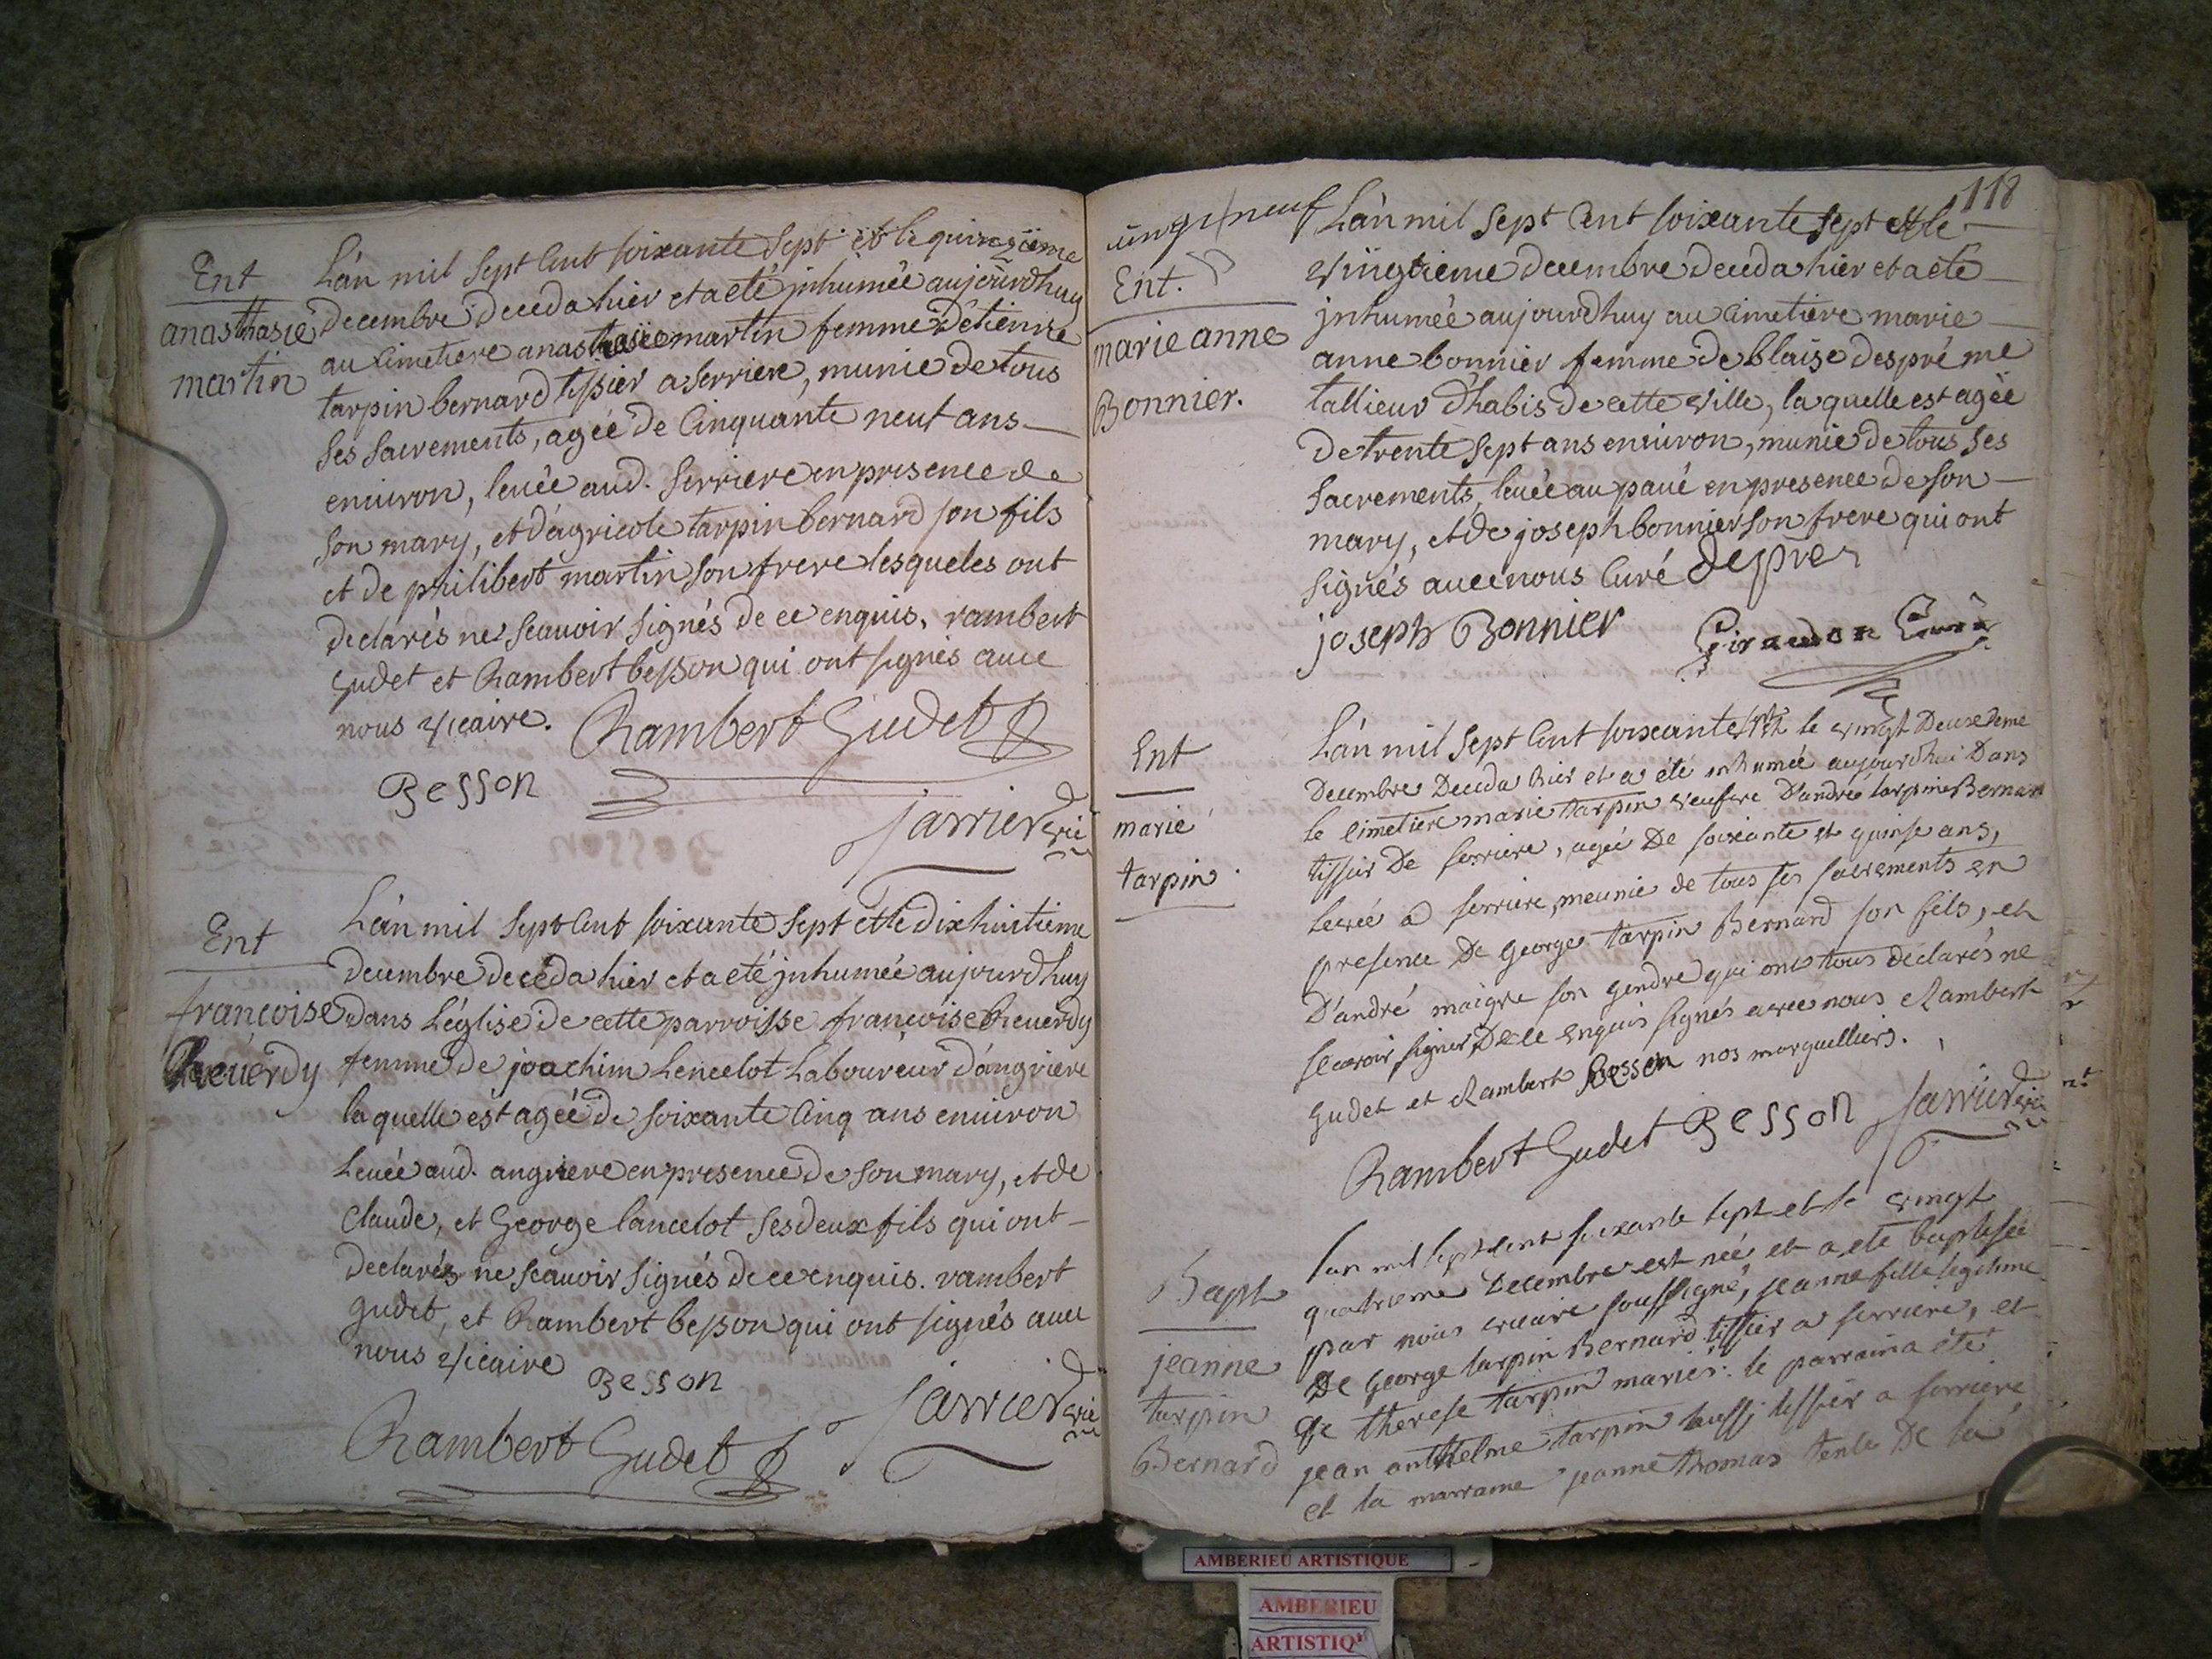 Ent
anasthasie
martin
L'an mil sept cent soixante sept et le quinzième
decembre deceda hier et a eté jnhumée aujourdhuy
au cimetiere anasthasie martin femme d'etienne
tarpin bernard tissier a serriere, munie de tous
ses sacrements, agée de cinquante neuf ans
enuiron, leuée aud. serriere en presence de
son mary, et d'agricole tarpin bernard son fils
et de philibert martin son frere lesqueles ont
declarés ne scauoir signés de ce enquis. rambert
gudet et Rambert besson qui ont signés auec
nous vicaire. Rambert Gudet
Besson
jarrier vic
Ent
francoise
Reuerdy
L'an mil sept cent soixante sept et le dix huitieme
decembre deceda hier et a eté jnhumée aujourdhuy
dans l'églisé de cette parroisse francoise Reuerdy
femme de joachim Lencelot Laboureur d'angriere
la quelle est agée de soixante cinq ans enuiron
Leuée aud. angriere en presence de son mary, et de
Claude, et George lancelot ses deux fils qui ont
declarés ne scauoir signés de ce enquis. rambert
gudet, et Rambert besson qui ont signés auec
nous vicaire Besson
Rambert Gudet jarrier vic
118
neuf
Ent.
marie anne
Bonnier.
L'an mil sept cent soixante sept et le
vingtieme decembre deceda hier et a eté
jnhumée aujourdhuy au cimetiere marie
anne bonnier femme de blaise despré me
tallieur d'habis de cette ville, la quelle est agée
de trente sept ans enuiron, munie de tous ses
sacrements, leuée au paué en presence de son
mary, et de joseph bonnier son frere qui ont
signés auec nous Curé depre
joseph Bonnier Giraudon Curé
Ent
marie
tarpin
L'an mil sept cent soixante sept le vingt Deuxieme
Decembre Deceda hier et a été inhumée aujourdhui Dans
le cimetiere marie tarpin veufve D'andré tarpin Bernard
tissier De serriere, agée De soixante et quinse ans,
levée a serriere, meunie de tous ses sacrements en
presence De George tarpin Bernard son fils, et
D'andré maigre son gendre qui ont tous declarés ne
scavoir signer De ce enquis signés avec nous Rambert
gudet et Rambert Besson nos marguelliers.
Rambert Gudet Besson jarrier vic
Bapt
jeanne
tarpin
Bernard
l'an mil sept cent soixante sept et le vingt
quatrieme Decembre est née et a eté baptisée
par nous vicaire soussigné, jeanne fille legitime
De George tarpin Bernard tissier a serriere, et
de therese tarpin mariés: le parrain a eté
jean anthelme tarpin aussj tissier a serriere
et la marraine jeanne thomas tente De la
AMBERIEU ARTISTIQUE
AMBERIEU
ARTISTIQ